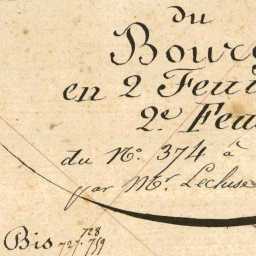 du
Bourg
en 2 Feui
2e Feu
du No. 374 à
par Mr. Lecluse
Bis 727. 728
759